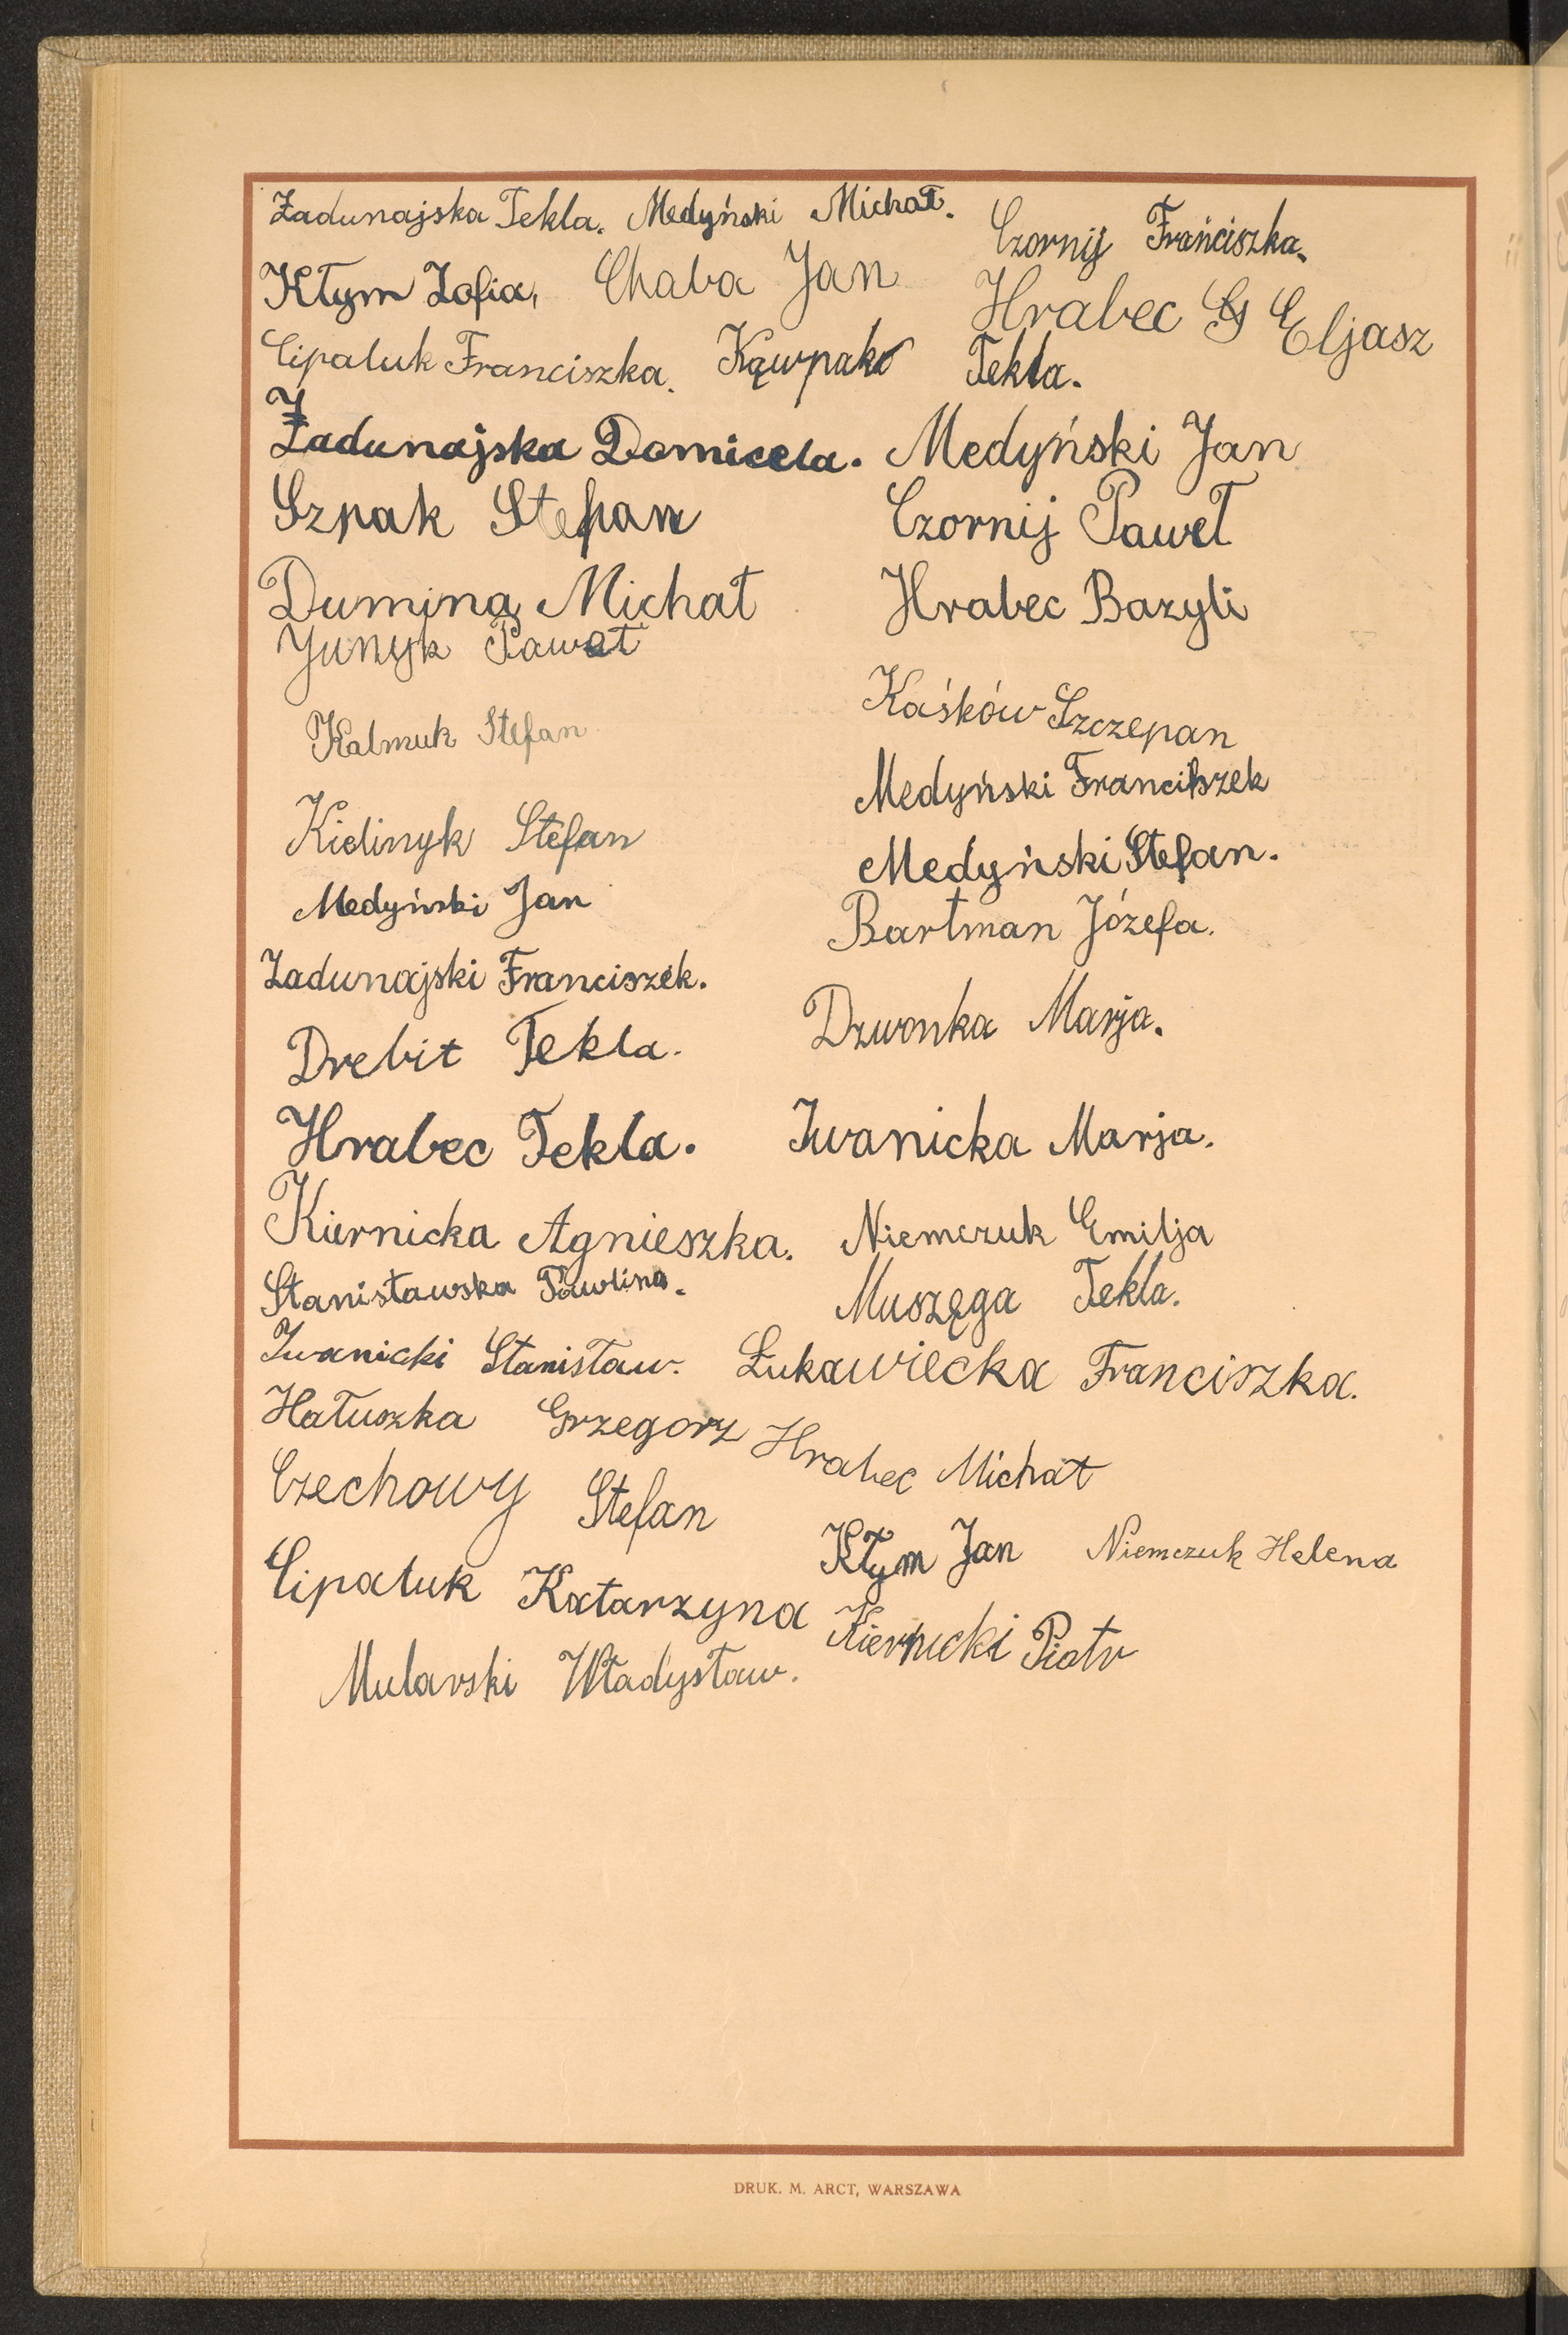 Zadunajska Tekla. Medyński Michał. Czornij Frańciszka.
Kłym Zofia, Chaba Jan Hrabec G Eljasz
Cipaluk Franciszka. Tekla.
Zadunajska Domicela. Medyński Jan
Szpak Stefan Czornij Paweł
Dumina Michał Hrabec Bazyli
Junyk Paweł
Kaśków Szczepan
Kalmuk Stefan
Medyński Franciszek
Kielinyk Stefan
Medyński Stefan.
Medyński Jan Bartman Józefa.
Zadunajski Franciszek.
Drebit Tekla. Dzwonka Marja.
Hrabec Tekla. Iwanicka Marja.
Kiernicka Agnieszka. Niemczuk Emilja
Stanisławska Pawlina. Muszęga Tekla.
Iwanicki Stanisław. Łukawiecka Franciszka.
Hałuszka Grzegorz Hrabec Michał
Czechowy Stefan
Kłym Jan Niemczuk Helena
Cipaluk Katarzyna Kiernicki Piotr
Mularski Władysław.
DRUK. M. ARCT, WARSZAWA